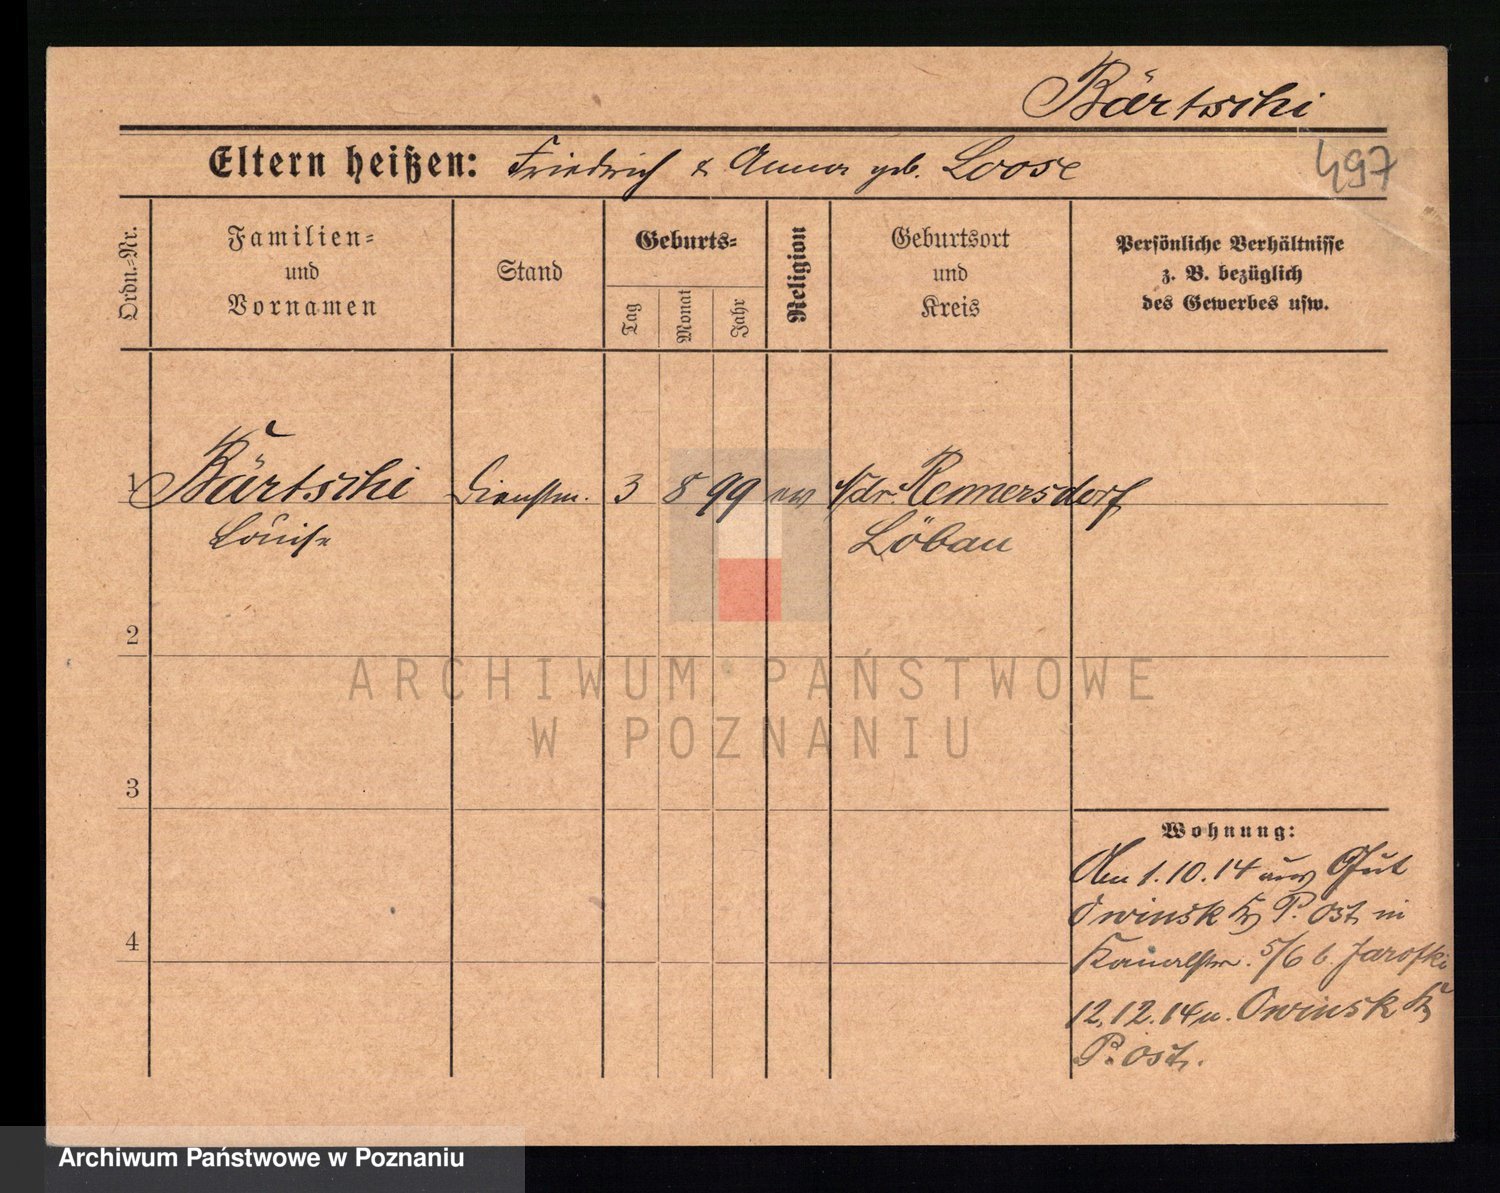 Bärtschi
Eltern heißen: Friedrich & Anna geb. Loose
497
Ordn.=Nr.
Familien=
und
Vornamen
Stand
Geburts=
Tag
Monat
Jahr
Religion
Geburtsort
und
Kreis
Persönliche Verhältnisse
z. B. bezüglich
des Gewerbes usw.
1 Bärtschi Dienstm. 3 8 99 ev Ndr. Rennersdorf
Louise Löbau
2
3
4
Wohnung:
Am 1.10.14 aus Gut
Owinsk Kr. P. Ost in
Kanalstr. 5/6 b.
12.12.14 n. Owinsk Kr.
P. Ost.
ARCHIWUM PAŃSTWOWE
W POZNANIU
Archiwum Państwowe w Poznaniu